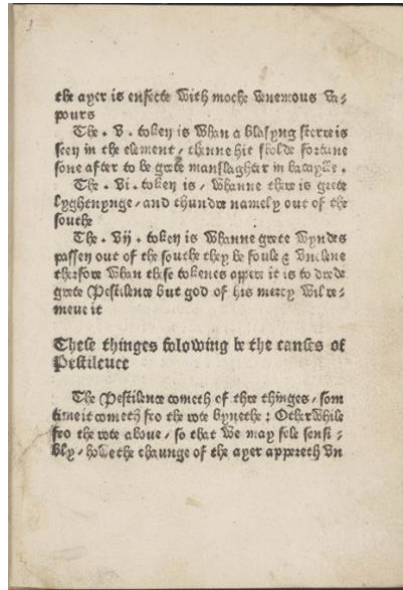 the ayer is enfecte with moche venemous va⸗
pours
The . v . token is whan a blasyng sterre is
seen in the element / thenne hit sholde fortune
sone after to be grete manslaghter in batayile .
The . vi . token is / whanne there is grete
lyghtnynge / and thundre namely out of the
southe
The . vij . token is whanne grete wyndes
passen out of the southe they be foule & vnclene
therfore whan these tokenes appere it is to drede
grete Pestilence but god of his mercy wil re⸗
meue it
These thinges folowing be the causes of
Pestilence
The Pestilence cometh of thre thinges / som
time it cometh fro the rote bynethe : Otherwhile
fro the rote aboue / so that we may fele sensi ⸗
bly / howe the chaunge of the ayer appereth vn